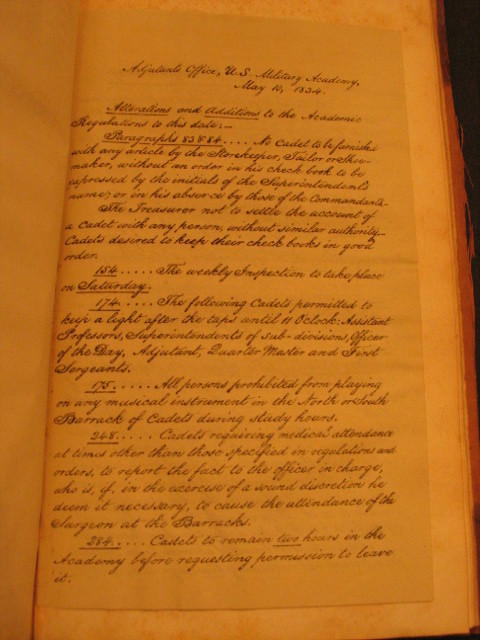 Adjutants Office, U.S. Military Academy,
May 19, 1834.
Alterations and Additions to the Academic
Regulations to this date:—
Paragraphs 83 & 84..... No Cadet to be furnished
with any article by the Storekeeper, Tailor or Shoe-
maker, without an order in his check book to be
expressed by the initials of the Superintendent's
name; or in his absence by those of the Commandants.
The Treasurer not to settle the account of
a Cadet with any person, without similar authority.
Cadets desired to keep their check books in good
order.
154..... The weekly Inspection to take place
on Saturday.
174..... The following Cadets permitted to
keep a light after the taps until 11 O'Clock: Assistant
Professors, Superintendents of sub-divisions, Officer
of the Day, Adjutant, Quarter Master and First
Sergeants.
175..... All persons prohibited from playing
on any musical instrument in the North or South
Barrack of Cadets during study hours.
248..... Cadets requiring medical attendance
at times other than those specified in regulations and
orders, to report the fact to the officer in charge,
who is, if, in the exercise of a sound discretion he
deem it necessary, to cause the attendance of the
Surgeon at the Barracks.
284.... Cadets to remain two hours in the
Academy before requesting permission to leave
it.